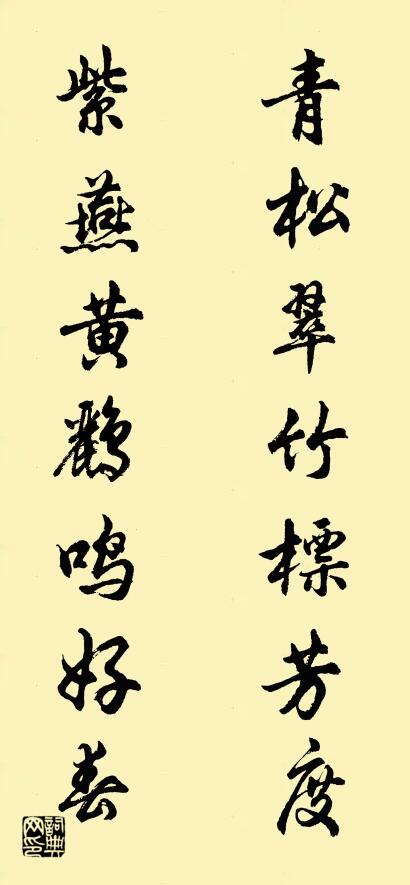 青松翠竹標芳度
紫燕黄鸝鸣好春
词典网印